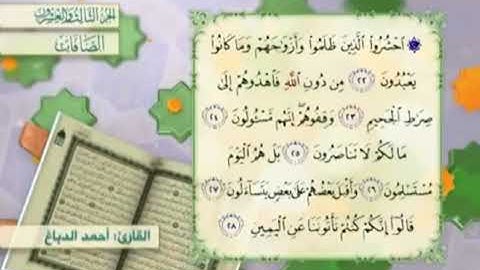 الجزء الثالث والعشرون
الصافات
۞ ٱحْشُرُوا۟ ٱلَّذِينَ ظَلَمُوا۟ وَأَزْوَٰجَهُمْ وَمَا كَانُوا۟
يَعْبُدُونَ ﴿٢٢﴾ مِن دُونِ ٱللَّهِ فَٱهْدُوهُمْ إِلَىٰ
صِرَٰطِ ٱلْجَحِيمِ ﴿٢٣﴾ وَقِفُوهُمْ ۖ إِنَّهُم مَّسْـُٔولُونَ ﴿٢٤﴾
مَا لَكُمْ لَا تَنَاصَرُونَ ﴿٢٥﴾ بَلْ هُمُ ٱلْيَوْمَ
مُسْتَسْلِمُونَ ﴿٢٦﴾ وَأَقْبَلَ بَعْضُهُمْ عَلَىٰ بَعْضٍ يَتَسَآءَلُونَ ﴿٢٧﴾
قَالُوٓا۟ إِنَّكُمْ كُنتُمْ تَأْتُونَنَا عَنِ ٱلْيَمِينِ ﴿٢٨﴾
القارئ: أحمد الدباغ